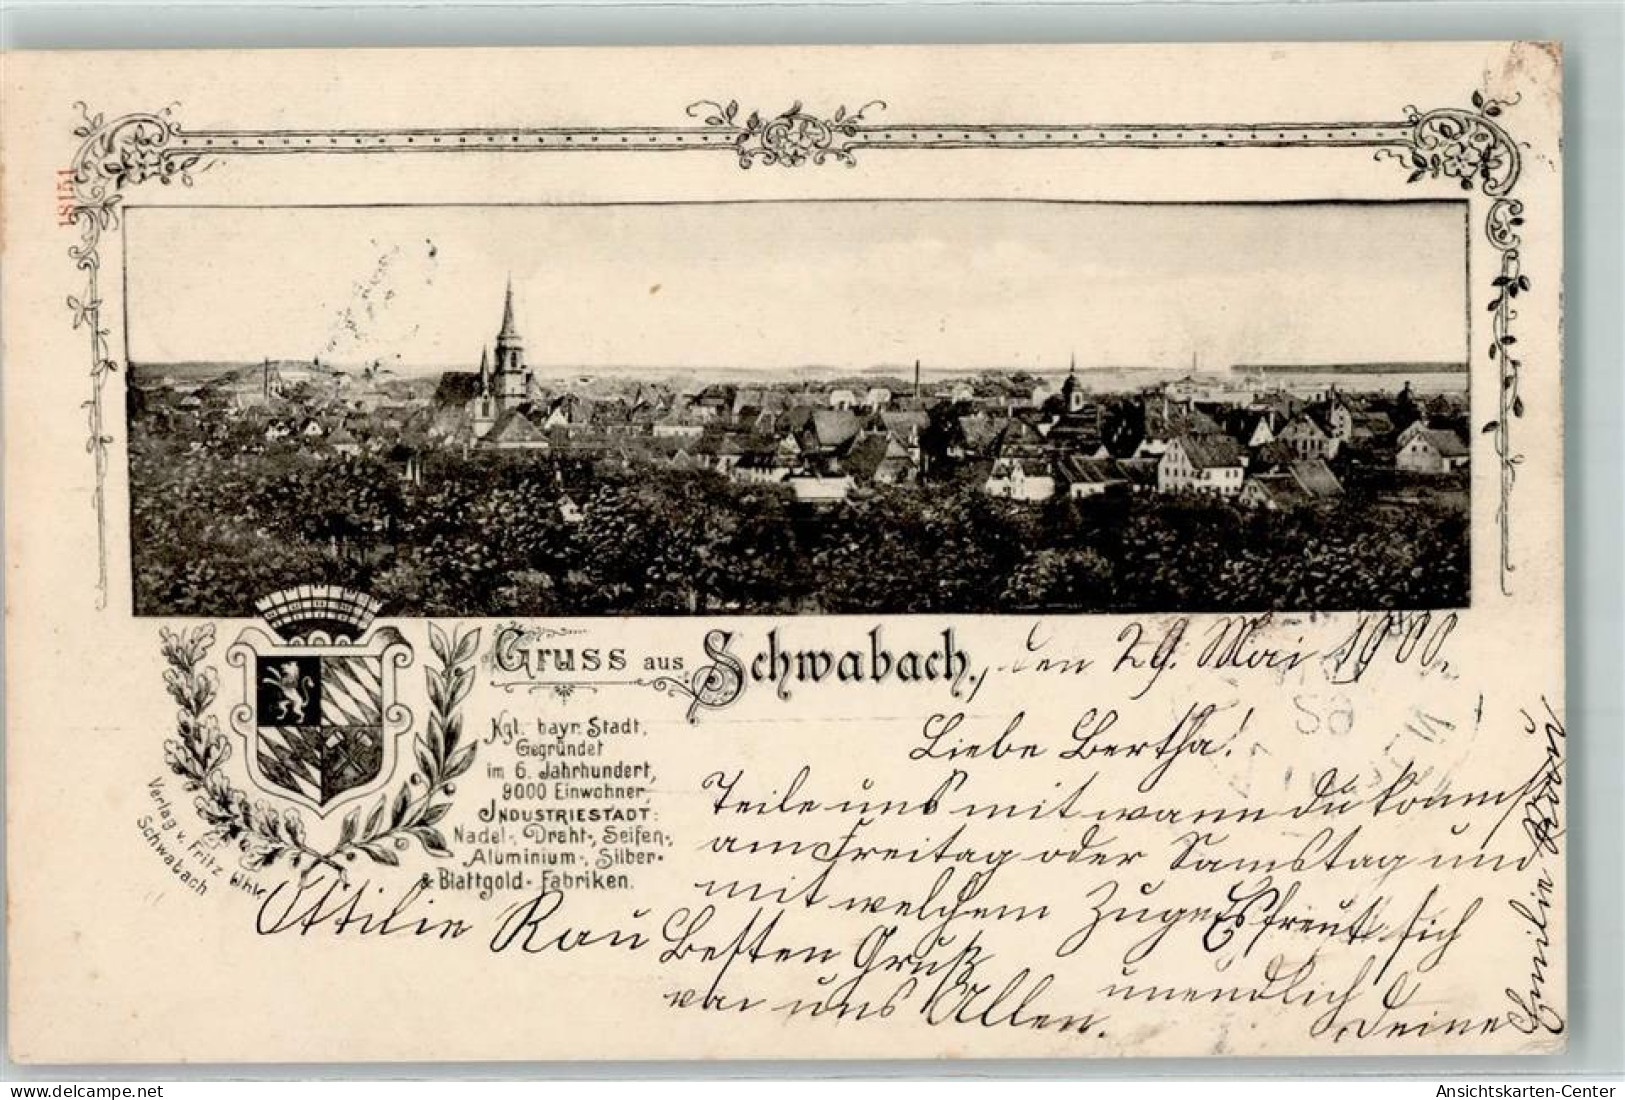 18151
Gruss aus Schwabach., den 29. Mai 1900.
Kgl. bayr. Stadt,
Gegründet
im 6. Jahrhundert,
9000 Einwohner,
INDUSTRIESTADT:
Nadel-, Draht-, Seifen-,
Aluminium-, Silber-
& Blattgold-Fabriken.
Verlag v. Fritz
Schwabach
Liebe Bertha!
Teile uns mit wann du kommst
am Freitag oder Samstag und
mit welchem Zuge Es freut sich
unendlich
Deine
Emilie Rau
Ottilie Rau
Besten Gruß
von uns Allen.
delcampe.net
Ansichtskarten-Center